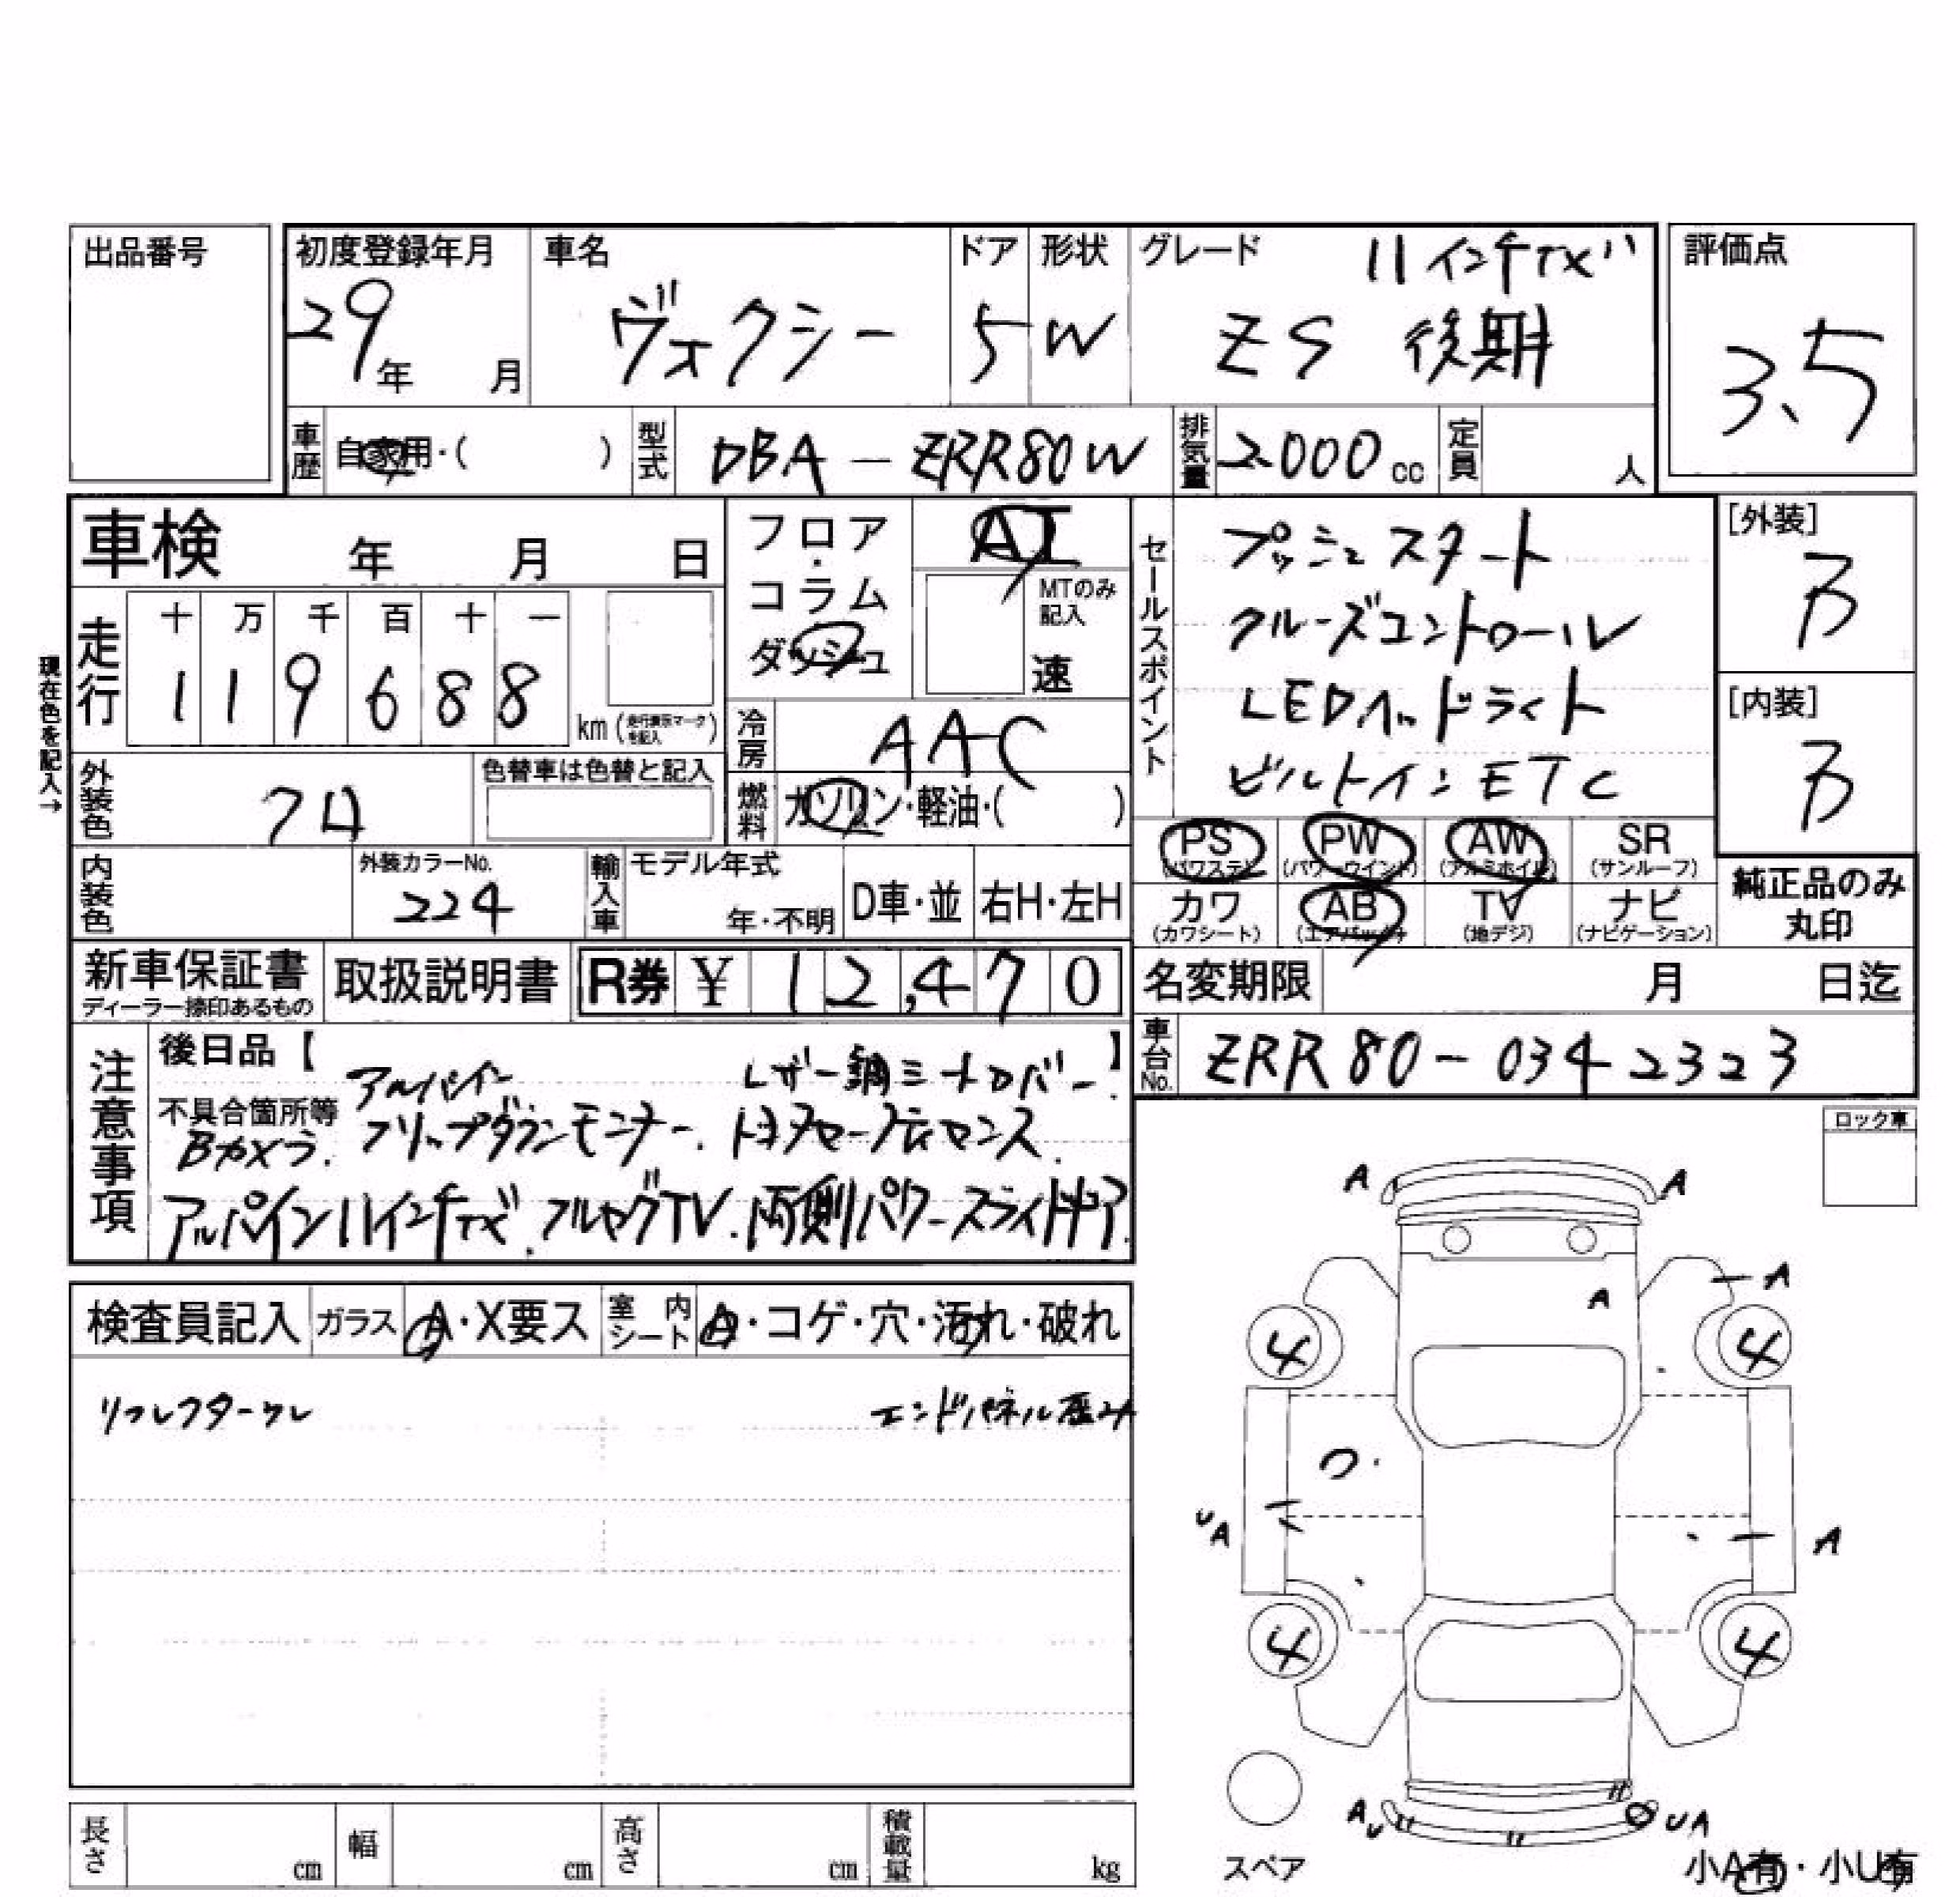 出品番号
初度登録年月
29年 月
車名
ヴォクシー
ドア
5
形状
W
グレード
11インチTXﾊﾞ
ZS 後期
評価点
3.5
車歴
自家用・( )
型式
DBA-ZRR80W
排気量
2000cc
定員
人
車検 年 月 日
走行
十 万 千 百 十 一
1 1 9 6 8 8
km (走行表示マークを記入)
現在色を記入→
外装色
クロ
色替車は色替と記入
内装色
外装カラーNo.
224
フロア・コラム
ダッシュ
AT
MTのみ記入
速
冷房
AAC
燃料
ガソリン・軽油・( )
輸入車
モデル年式
年・不明
D車・並
右H・左H
セールスポイント
プッシュスタート
クルーズコントロール
LEDヘッドライト
ビルトインETC
[外装]
B
[内装]
B
PS (パワステ)
PW (パワーウインド)
AW (アルミホイル)
SR (サンルーフ)
カワ (カワシート)
AB (エアバッグ)
TV (地デジ)
ナビ (ナビゲーション)
純正品のみ丸印
新車保証書
ディーラー捺印あるもの
取扱説明書
R券 ¥ 12,470
名変期限 月 日迄
車台No.
ZRR80-0342323
注意事項
後日品【 】
不具合箇所等
アルパイン
レザー調シートカバー.
Bカメラ. フリップダウンモニター.
アルパイン11インチTX. フルセグTV. 両側パワースライドドア
ロック車
検査員記入
ガラス
A・X要ス
室内シート
A・コゲ・穴・汚れ・破れ
リフレクターワレ
エンドパネル歪み
A
A
A
A
4
4
UA
A
4
4
AU
UA
スペア
小A有・小U有
長さ cm
幅 cm
高さ cm
積載量 kg